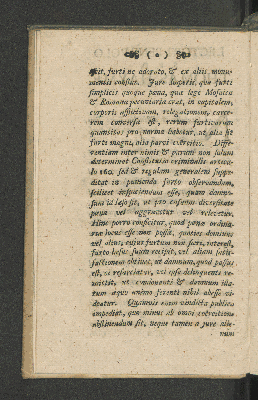 ( o )
furti ne adorato, & ex aliis monu-
mentis constat. Jure Imperii, quo furti
simplicis quoque pœna, quæ lege Mosaica
& Romana pecuniaria erat, in capitalem,
corporis afflictivam, relegationem, carce-
rem conversa est, rerum furtivarum
quantitas pro norma habetur, ut alia sit
furti magni, alia parvi coërcitio. Diffe-
rentiam inter nimis & parum non solum
determinat Constitutio criminalis artic.
160. sed & regulam generalem suppe-
ditat in puniendo furto observandam,
scilicet inspiciendum esse, quam damno-
sum id læso sit, ut pro eiusdem diversitate
pœna vel aggravetur vel relevetur.
Hinc porro conficitur, quod pœnæ ordina-
riæ locus esse non possit, quoties dominus
vel alius, cujus furtum non fieri, interest,
furto læsus suum recipit, vel aliam satis-
factionem obtinet, ut damnum, quod passus
est, ei resarciatur, vel ipse delinquenti re-
mittit, ut condonanti & damnum illa-
tum æquo animo ferenti nihil abesse vi-
deatur. Quamvis enim vindicta publica
impediat, quo minus ab omni coërcitione
abstinendum sit, neque tamen a jure alie-
num